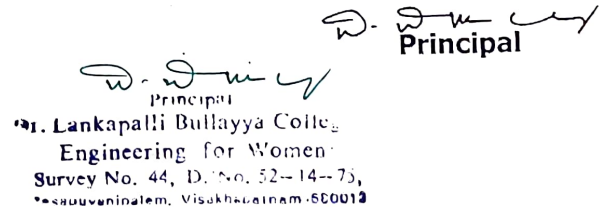 Principal
Principal
Lankapalli Bullayya Colle
Engineering for Women
Survey No. 44, D. No. 52-14-75,
Visakhapatnam-530013